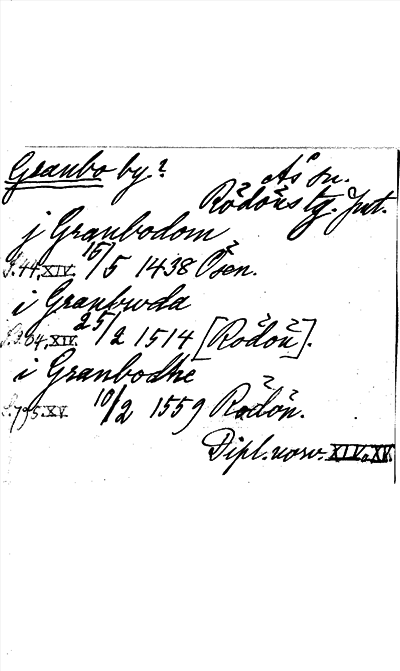 Granbo by?
Ås sn.
Rödöns tg. Jmt.
j Granbodom
S. 44, XIV. 15/5 1438 Ösen.
i Granbwda
25/2 1514 [Rödön].
i Granbodhe
XV. 10/2 1559 Rödön.
Dipl. norv. XIV o XV.